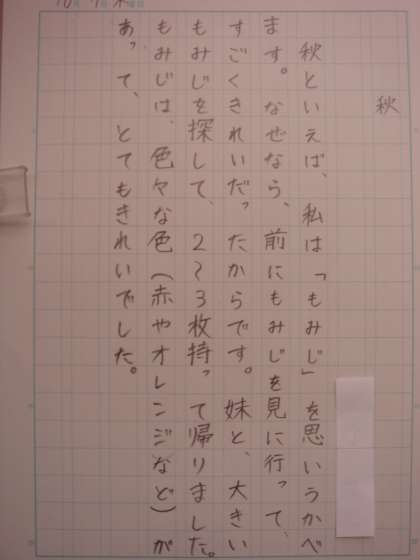 10月9日木曜日
秋
秋といえば、私は「もみじ」を思いうかべ
ます。なぜなら、前にもみじを見に行って、
すごくきれいだったからです。妹と、大きい
もみじを探して、2〜3枚持って帰りました。
もみじは、色々な色(赤やオレンジなど)が
あって、とてもきれいでした。